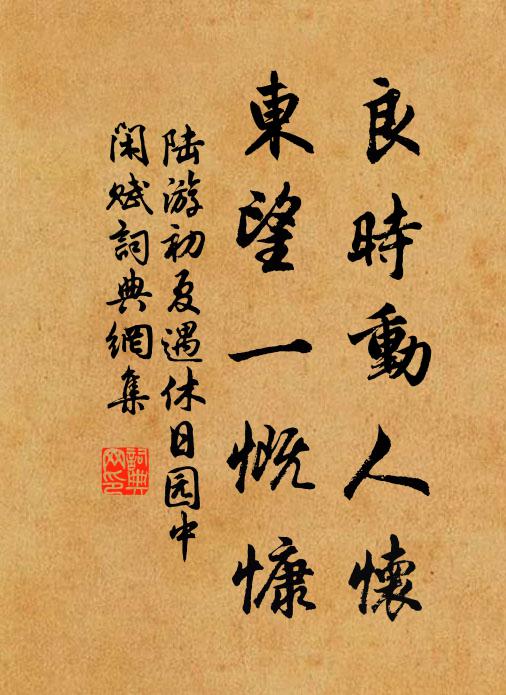 良時動人懷
東望一慨慷
陆游初夏遇休日园中
閑赋詞典網集
詞典
網印